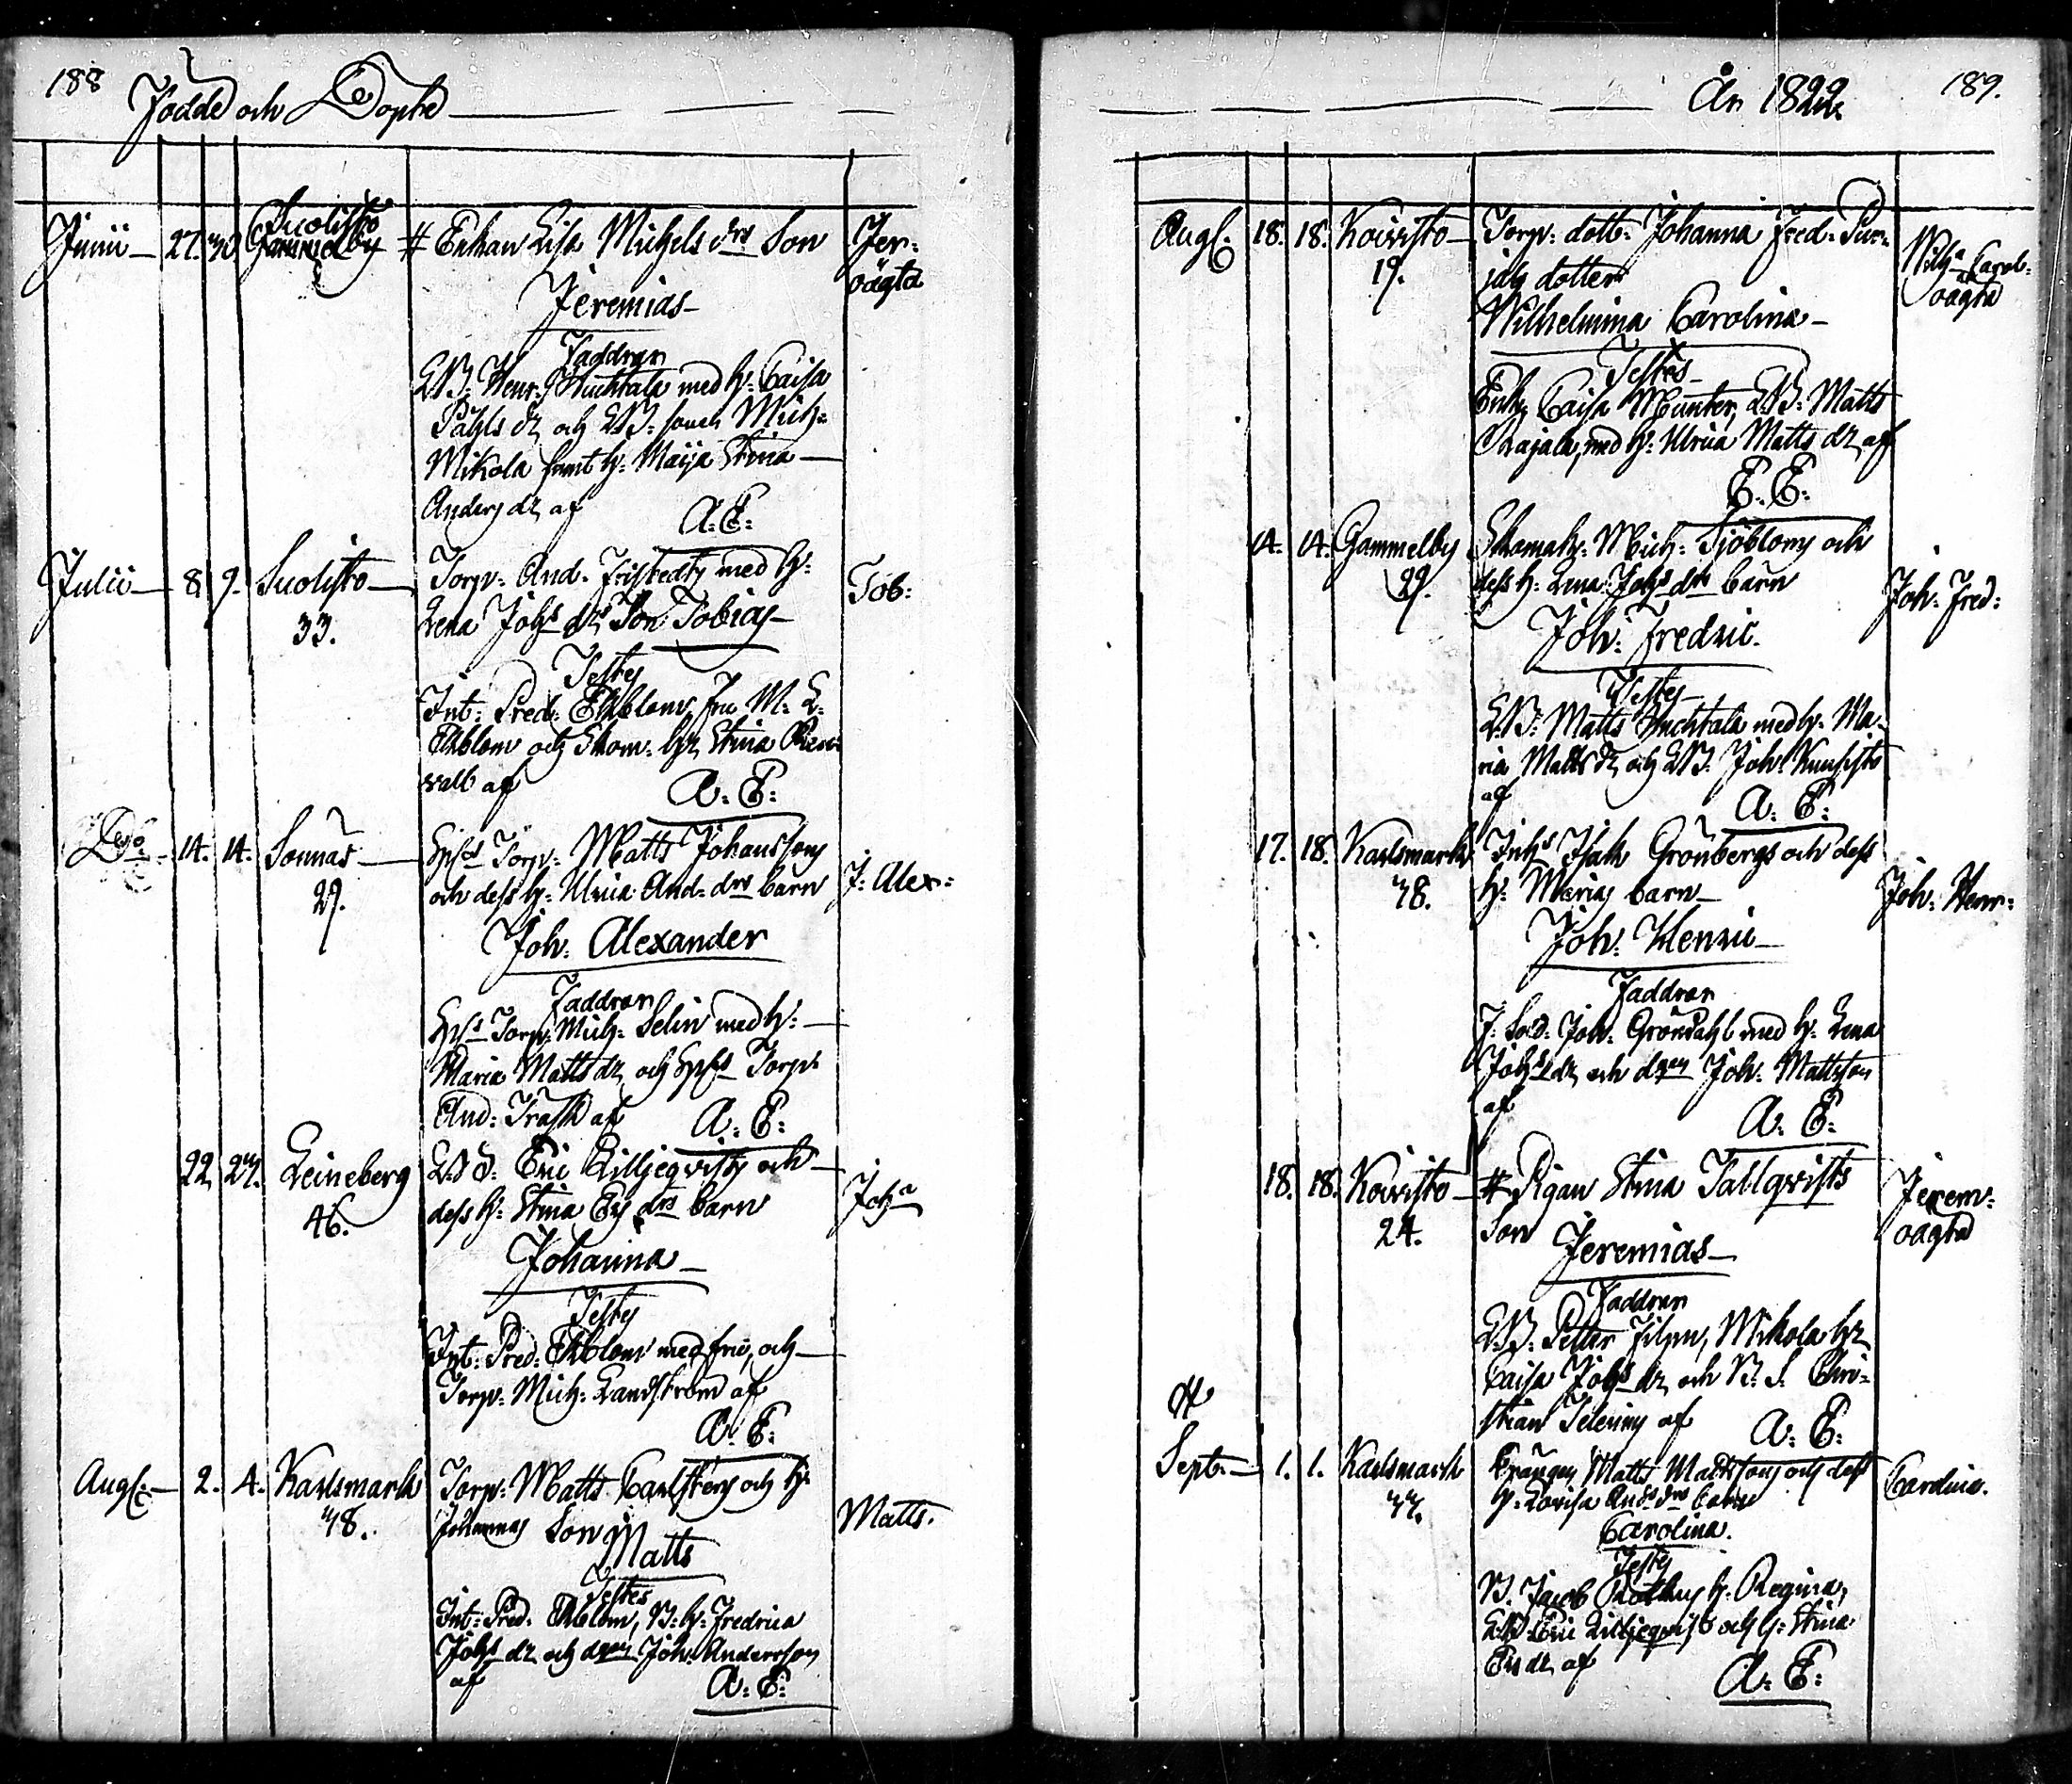 188
Födde och Döpte
Junii 27. 30 Suolisto
Gammelby
# Enkan Lisa Michels drs Son
Jeremias
Jer:
oägta
Faddrar
LB: Henr: Huchtala med h: Caisa
Påhls dr, och LB: sonen Mich:
Mikola samt h: Maija Stina
Anders dr, af
A: E:
Julii 8 9. Suolisto
33.
Torp: And. Fristedts med h:
Lena Johs drs Son Tobias
Tob:
Testes
Int: Pred: Ekblom, fru M: L:
Ekblom och Skom: h:
vall af
A: E:
Do 14. 14. Sonnäs
29.
Torp: Matts Johanssons
och dess h: Ulrica And: drs barn
Joh: Alexander
J: Alex:
Faddrar
Torp: Mich: Selin med h:
Maria Matts dr, och Torp:
And: Träsk af
A: E:
22 27. Leineberg
46.
Eric Lilljeqvists och
dess h: Stina Ers drs barn
Johanna
Joha
Testes
Int: Pred: Ekblom med fru, och
Torp: Mich: Landström af
A: E:
Aug: 2. 4. Karlsmark
38.
Torp: Matts Carlstens och h:
Johannas Son
Matts
Matts.
Testes
Int: Pred. Ekblom, B: h: Fredrica
Johs dr och dgen Joh: Andersson
af
A: E:
År 1822.
189.
Aug: 18. 18. Koivisto
19.
Torp: dott: Johanna Fred:
dotter
Wilhelmina Carolina
Wilha Carol:
oägta
Testes
Enk: Caisa Munter, LB: Matts
Ojajala, med h: Ulrica Matts dr, af
E. E:
14. 14. Gammelby
29.
Skomak: Mich: Sjöbloms och
dess h: Lena Johs drs barn
Joh: Fredric.
Joh: Fred:
Testes
LB: Matts Huchtala med h: Ma-
ria Matts dr, och LB: Joh: Kunsisto
af
A: E:
17. 18. Karlsmark
38.
Inhs Isak Grönbergs och dess
h: Marias barn
Joh: Henric
Joh: Henr:
Faddrar
F: Sold: Joh: Gröndahl med h: Lena
Johs dr och dgen Joh: Mattsson
af
A: E:
18. 18. Koivisto
24.
# Pigan Stina Tallqvists
Son
Jeremias
Jerem:
oägta
Faddrar
LB: Petter Filpu, Mikola h:
Caisa Johs dr, och B: S: Chri-
stian Telenius af
A: E:
Sept: 1. 1. Karlsmark
37.
Drängen Matts Mattssons och dess
h: Lovisa Ands drs barn
Carolina.
Carolina.
Testes
B. Jacob h: Regina,
Eric Lilljeqvist och h: Stina
Ers dr, af
A: E: